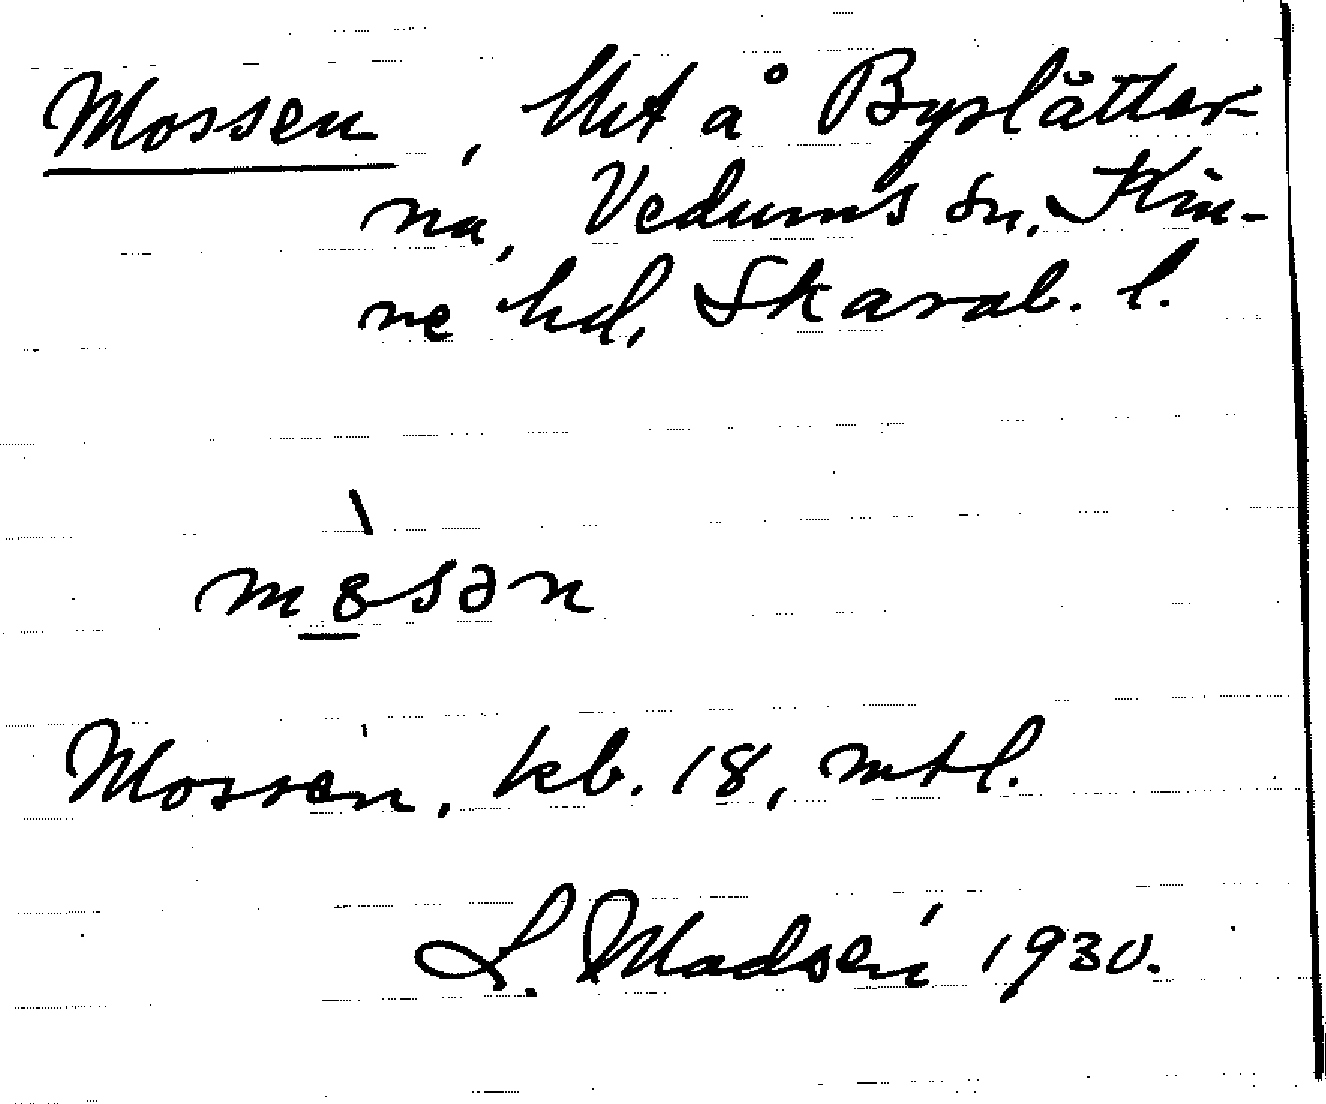 Mossen, lht å Byslåtter-
na, Vedums sn, Kin-
ne hd, Skarab. l.
m8̀sən
Mossen, kb. 18, mtl.
L. Madsén 1930.